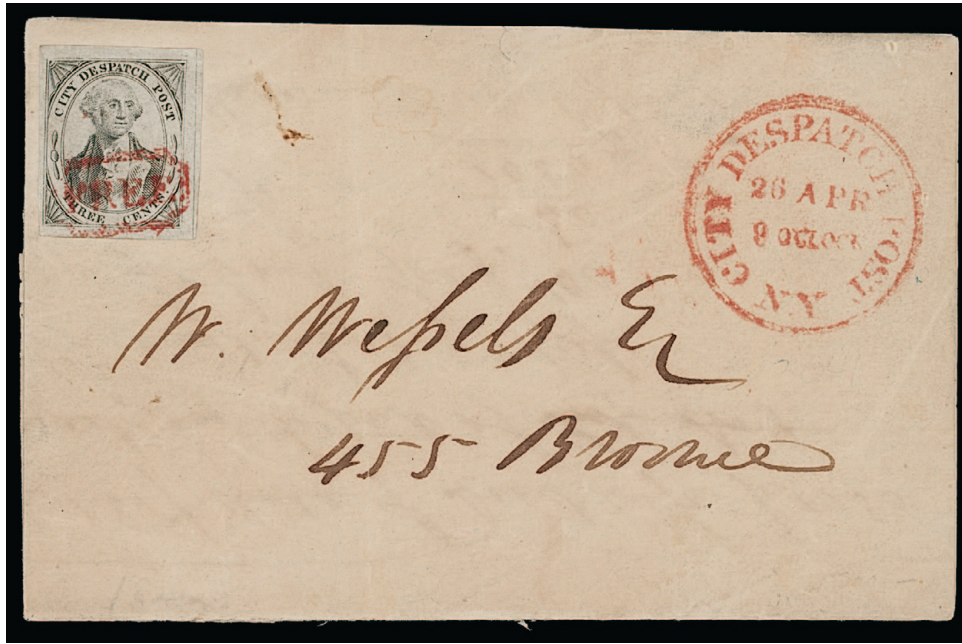 CITY DESPATCH POST
THREE CENTS.
FREE
CITY DESPATCH POST
26 APR
9 O'CLOCK
N.Y.
W. Wessels Esr
455 Broome